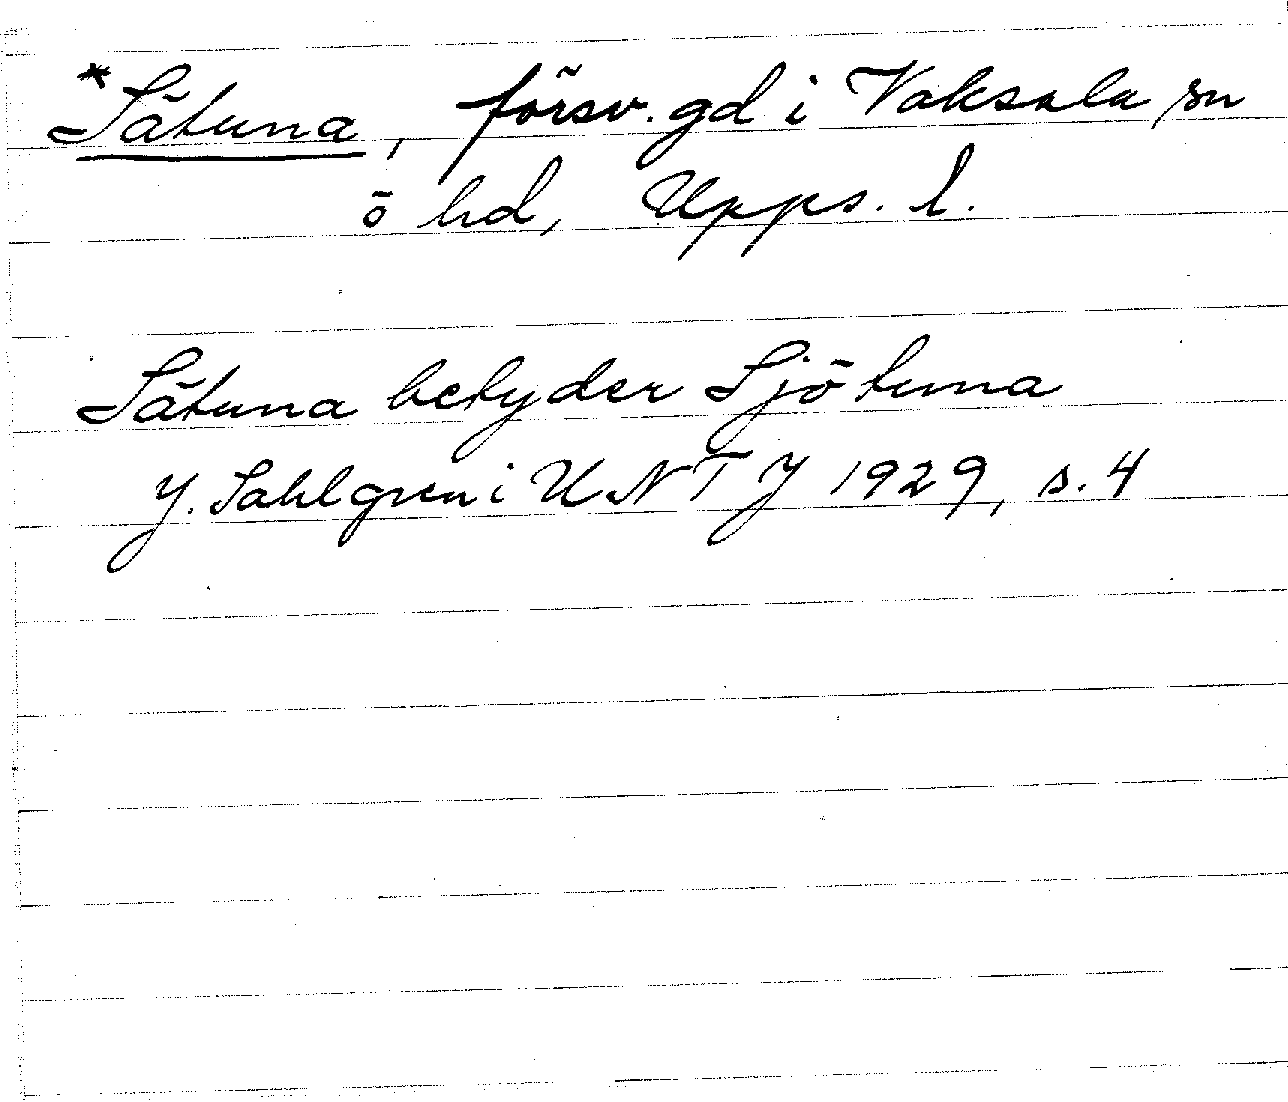 *Sätuna, försv. gd i Vaksala sn
ö hd, Upps. l.
Sätuna betyder Sjötuna
J. Sahlgren i UNTJ 1929, s. 4